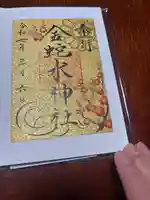 奉拝
金蛇水神社
令和七年三月六日